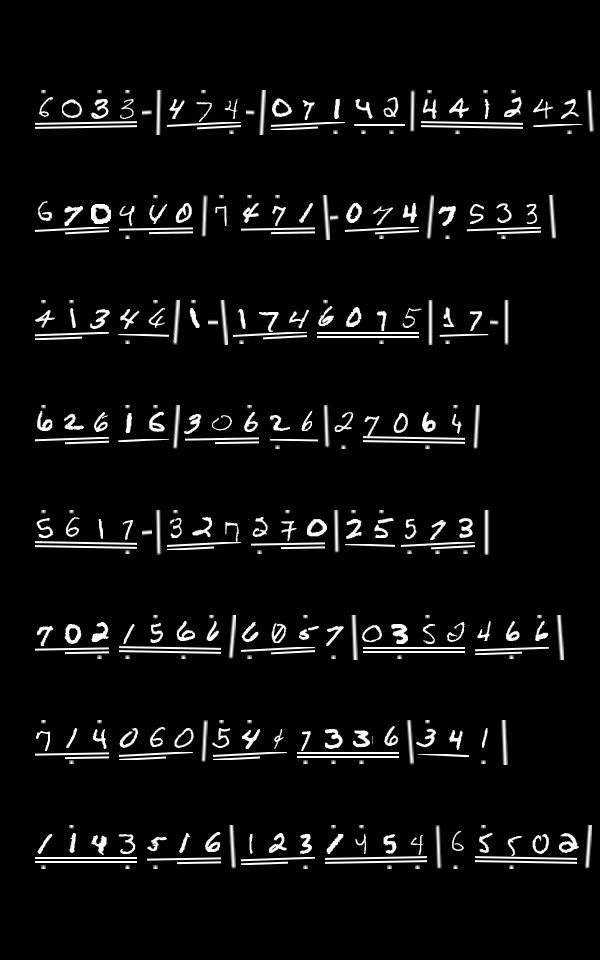 6 0 3 3 - | 4 7 4 - | 0 7 1 4 2 | 4 4 1 2 4 2 |
6 7 0 4 4 0 | 7 4 7 1 | - 0 7 4 | 7 5 3 3 |
4 1 3 4 6 | 1 - | 1 7 4 6 0 7 5 | 1 7 - |
6 2 6 1 6 | 3 0 6 2 6 | 2 7 0 6 4 |
5 6 1 7 - | 3 2 7 2 7 0 | 2 5 5 7 3 |
7 0 2 1 5 6 6 | 6 0 5 7 | 0 3 5 2 4 6 6 |
7 1 4 0 6 0 | 5 4 4 7 3 3 6 | 3 4 1 |
1 1 4 3 5 1 6 | 1 2 3 1 4 5 4 | 6 5 5 0 2 |